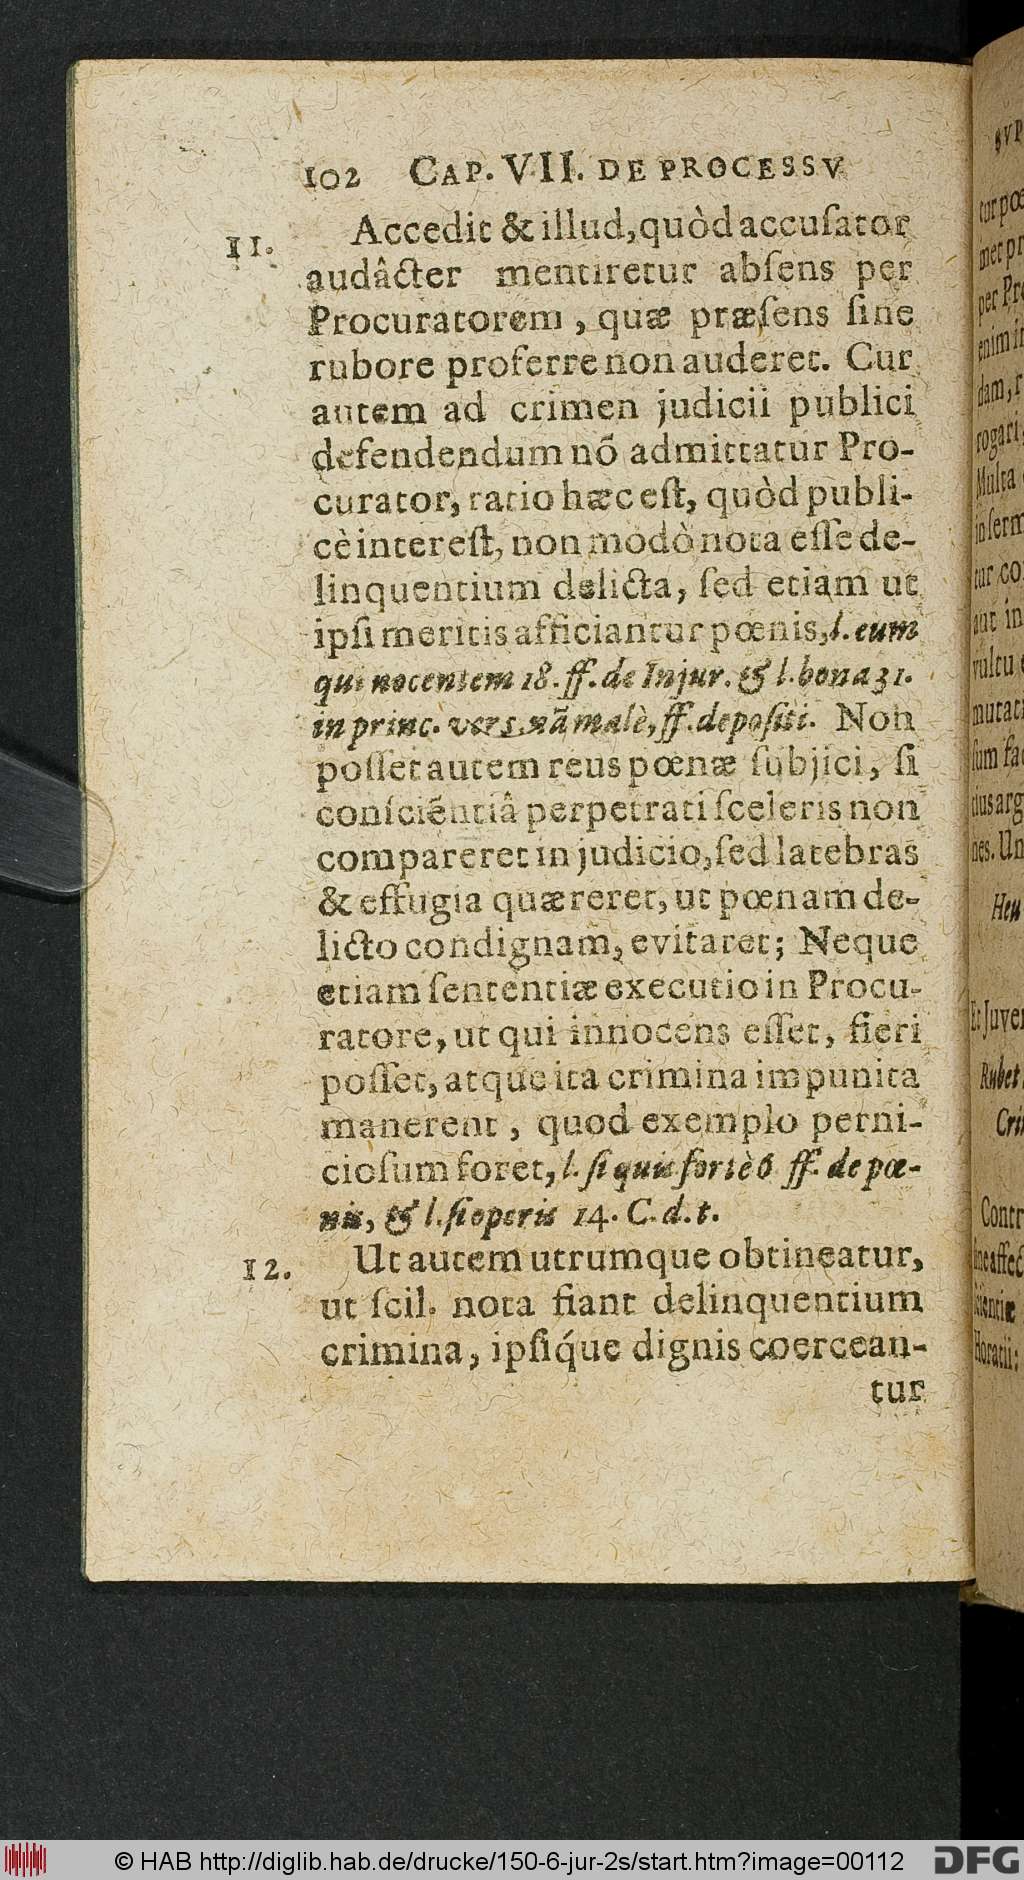 102 CAP. VII. DE PROCESSV
11. Accedit & illud, quòd accuſator
audâcter mentiretur abſens per
Procuratorem, quæ præſens ſine
rubore proferre non auderet. Cur
autem ad crimen judicii publici
defendendum nõ admittatur Pro-
curator, ratio hæc eſt, quòd publi-
cè intereſt, non modò nota eſſe de-
linquentium delicta, ſed etiam ut
ipſi meritis afficiantur pœnis, l. eum
qui nocentem 18. ff. de Injur. & l. bona 31.
in princ. verſ. nã malè, ff. depoſiti. Non
poſſet autem reus pœnæ ſubjici, ſi
conſciẽntiâ perpetrati ſceleris non
compareret in judicio, ſed latebras
& effugia quæreret, ut pœnam de-
licto condignam, evitaret; Neque
etiam ſententiæ executio in Procu-
ratore, ut qui innocens eſſet, fieri
poſſet, atque ita crimina impunita
manerent, quod exemplo perni-
cioſum foret, l. ſi quis fortè 6 ff. de pœ-
nis, & l. ſi operis 14. C. d. t.
12. Ut autem utrumque obtineatur,
ut ſcil. nota fiant delinquentium
crimina, ipſiq́ue dignis coercean-
tur
SVP
tur pœ
met pr
per Pro
enim i
dam, r
rogari
Multa
in ſerm
tur co
aut in
vultu
mutati
ſum fa
tius arg
nes. Un
Heu
Et Juve
Rubet
Cri
Contr
ſine affec
ſcientiæ
Horatii:
© HAB http://diglib.hab.de/drucke/150-6-jur-2s/start.htm?image=00112
DFG